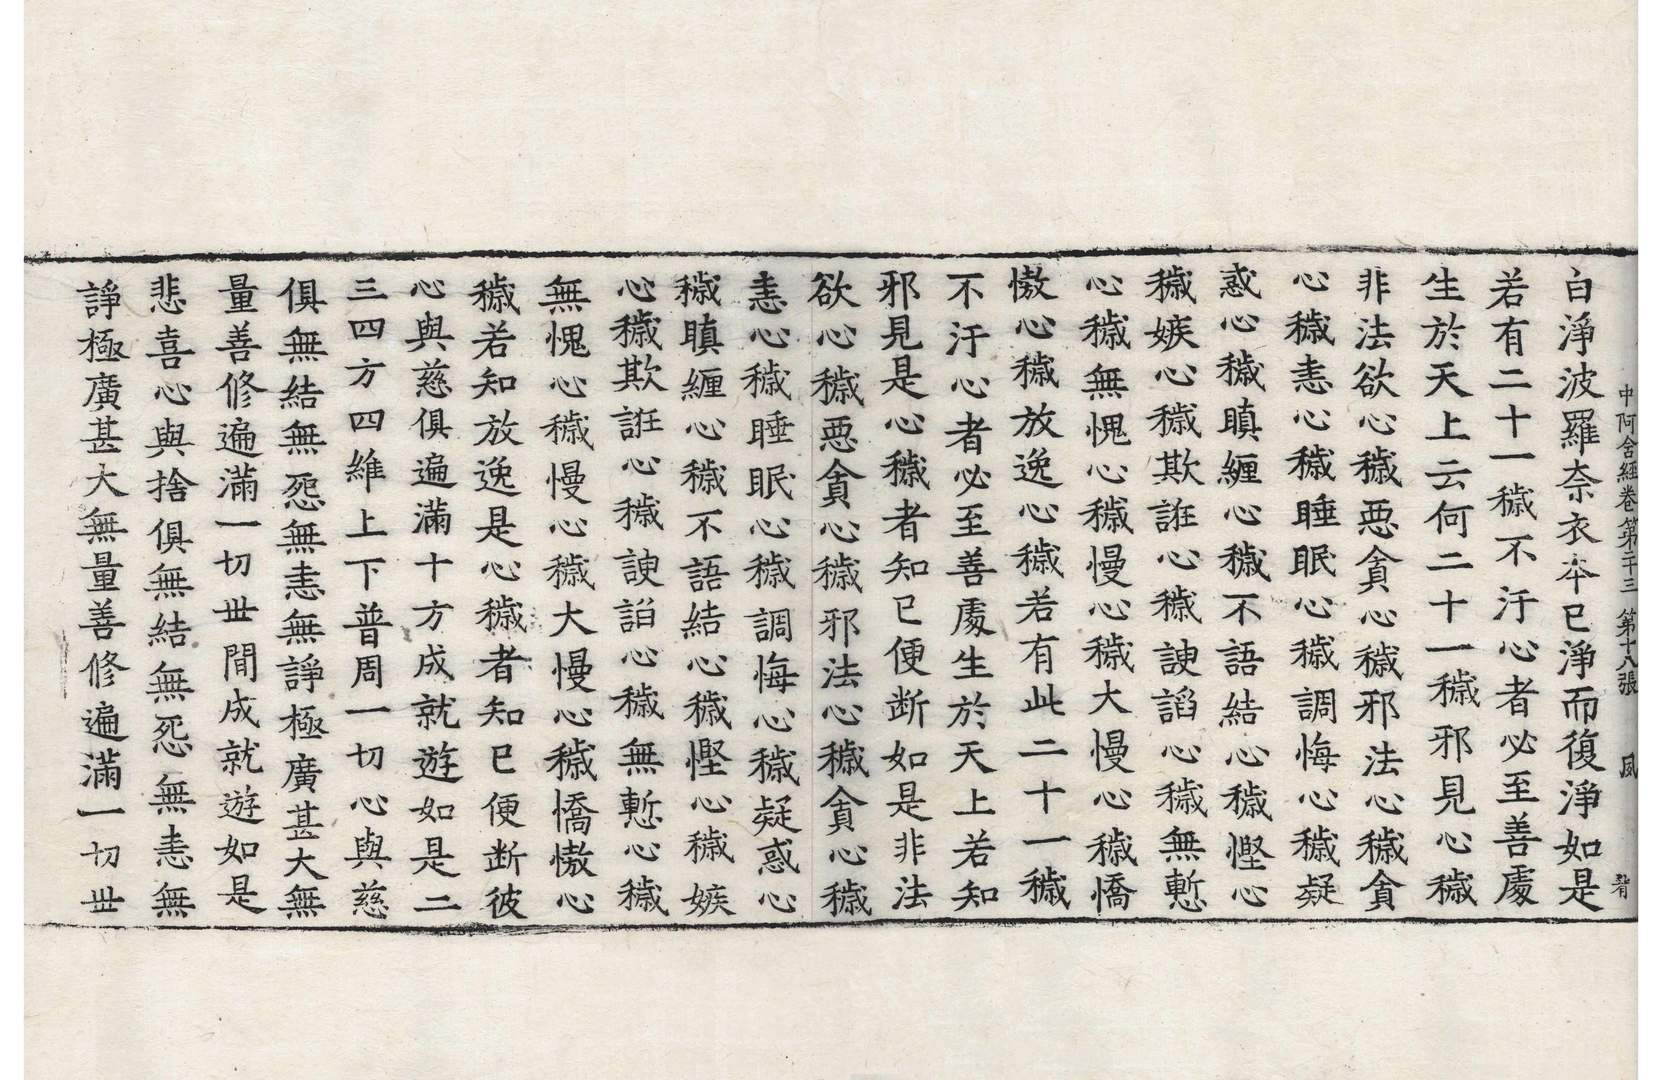 中阿含經卷第二十三 第十八張 夙
白淨波羅奈衣夲已淨而復淨如是
若有二十一穢不汙心者必至善處
生於天上云何二十一穢邪見心穢
非法欲心穢惡貪心穢邪法心穢貪
心穢恚心穢睡眠心穢調悔心穢疑
惑心穢瞋纏心穢不語結心穢慳心
穢嫉心穢欺誑心穢諛諂心穢無慙
心穢無愧心穢慢心穢大慢心穢憍
慠心穢放逸心穢若有此二十一穢
不汙心者必至善處生於天上若知
邪見是心穢者知已便断如是非法
欲心穢惡貪心穢邪法心穢貪心穢
恚心穢睡眠心穢調悔心穢疑惑心
穢瞋纏心穢不語結心穢慳心穢嫉
心穢欺誑心穢諛諂心穢無慙心穢
無愧心穢慢心穢大慢心穢憍慠心
穢若知放逸是心穢者知已便断彼
心與慈俱遍滿十方成就遊如是二
三四方四維上下普周一切心與慈
俱無結無怨無恚無諍極廣甚大無
量善修遍滿一切世間成就遊如是
悲喜心與捨俱無結無怨無恚無
諍極廣甚大無量善修遍滿一切世